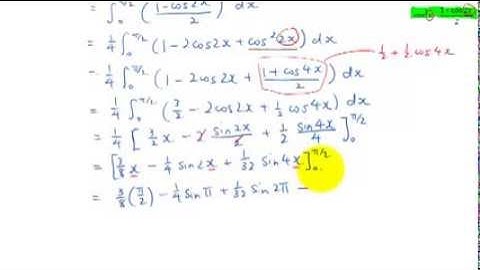 = ∫₀^π/2 (1-cos2x / 2) dx
= 1/4 ∫₀^π/2 (1 - 2cos2x + cos² 2x) dx
= 1/4 ∫₀^π/2 (1 - 2cos2x + 1 + cos 4x / 2) dx 1/2 + 1/2 cos4x
= 1/4 ∫₀^π/2 (3/2 - 2cos2x + 1/2 cos4x) dx
= 1/4 [ 3/2 x - 2 sin2x / 2 + 1/2 sin4x / 4 ]₀^π/2
= [ 3/8 x - 1/4 sin2x + 1/32 sin4x ]₀^π/2
= 3/8 (π/2) - 1/4 sin π + 1/32 sin 2π -